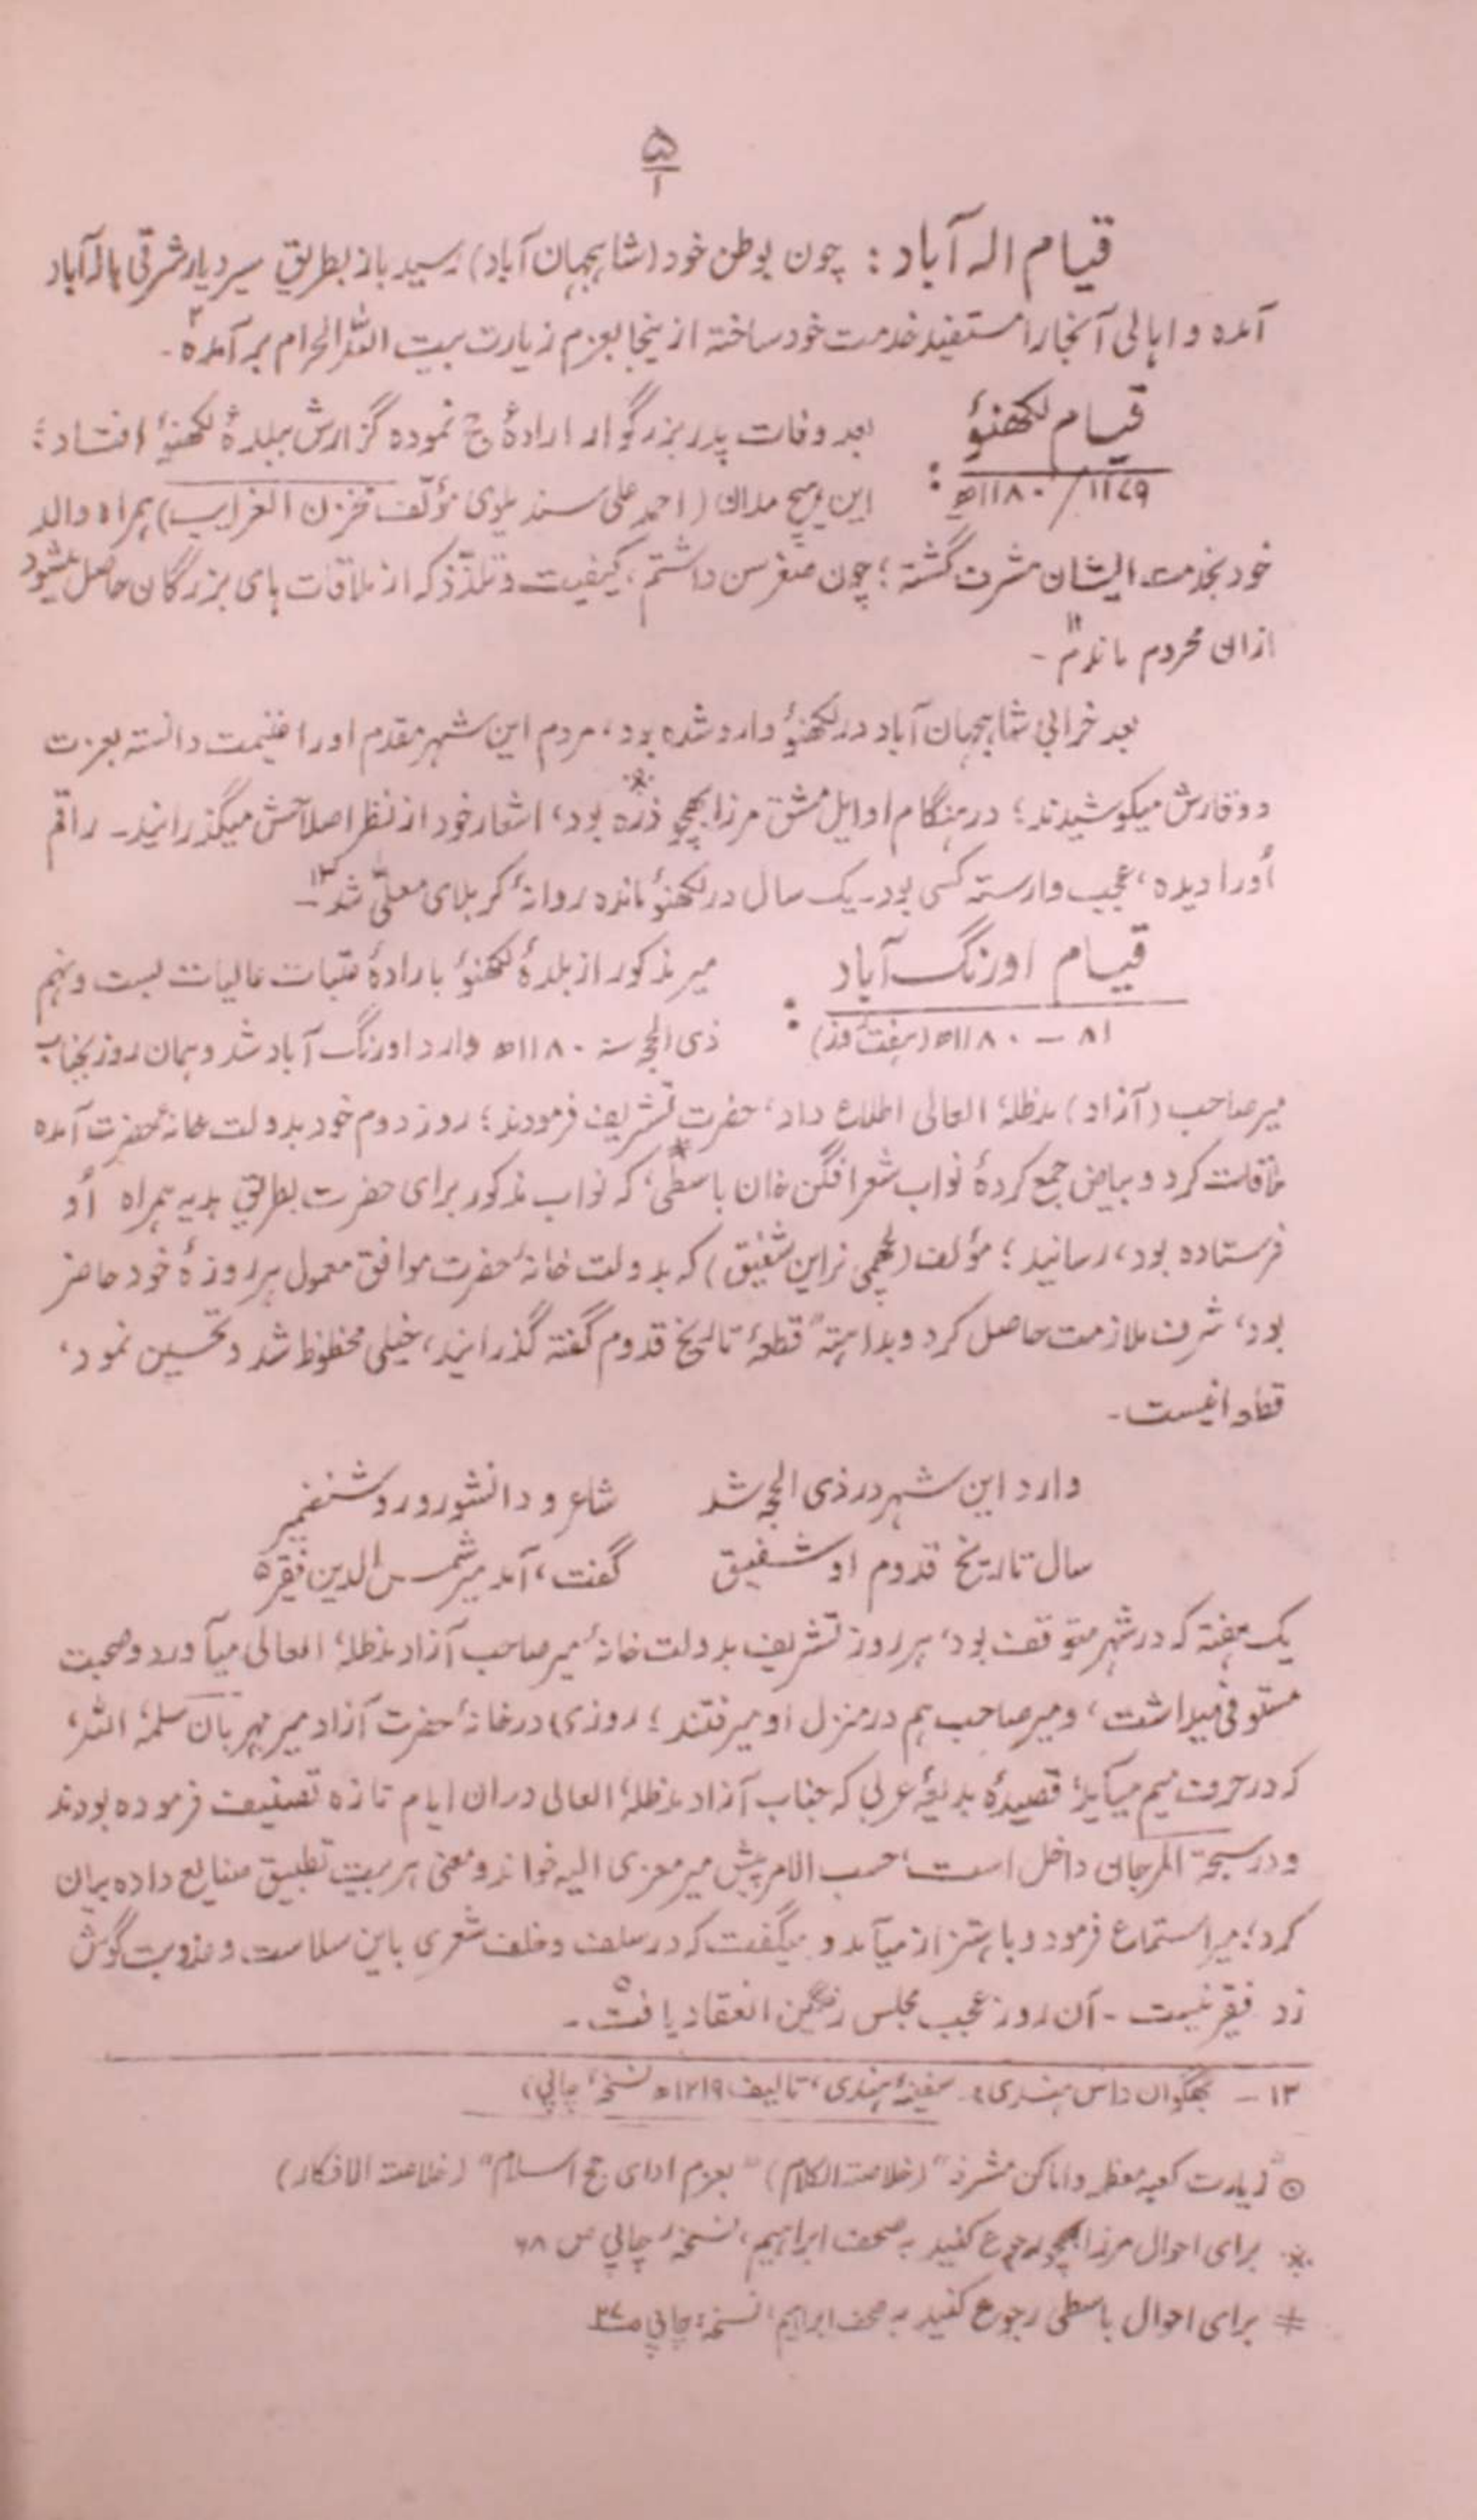 ۵
۱
قیام الہ آباد : چون بوطن خود (شاہجہان آباد) رسید باز بطریق سیر دیار شرقی بالہ آباد
آمدہ و اہالی آنجا را مستفید خدمت خود ساختہ ازینجا بعزم زیارت بیت اللہ الحرام برآمدہ۔
قیام لکھنؤ
۱۱۷۹/ ۱۱۸۰ھ :
بعد وفات پدر بزرگوار ارادۂ حج نمودہ گزارش ببلدۂ لکھنؤ افتاد؛
این ہیچ مدان (احمد علی سندیلوی مؤلف مخزن الغرایب) ہمراہ والد
خود بخدمت ایشان مشرف گشتہ؛ چون صغر سن داشتم، کیفیت و تلذذ کہ از ملاقات ہای بزرگان حاصل میشود
ازان محروم ماندم۱۱ -
بعد خرابی شاہجہان آباد در لکھنؤ وارد شدہ بود، مردم این شہر مقدم او را غنیمت دانستہ بعزت
و وقارش میکوشیدند؛ در ہنگام اوایل مشق مرزا بھچو ذرہ بود، اشعار خود از نظر اصلاحش میگذرانید۔ راقم
اُو را دیدہ، عجیب وارستہ کسی بود۔ یک سال در لکھنؤ ماندہ روانۂ کربلای معلّی شد۱۳ -
قیام اورنگ آباد
۸۱ – ۱۱۸۰ھ (ہفت روز) :
میر مذکور از بلدۂ لکھنؤ بارادۂ عتبات عالیات بست و نہم
ذی الحجہ سنہ ۱۱۸۰ھ وارد اورنگ آباد شد و ہمان روز بجناب
میر صاحب (آزاد) مدظلہٗ العالی اطلاع داد، حضرت تشریف فرمودند؛ روز دوم خود بدولت خانۂ حضرت آمدہ
ملاقات کرد و بیاض جمع کردۂ نواب شعر افگن خان باسطی، کہ نواب مذکور برای حضرت بطریق ہدیہ ہمراہ اُو
فرستادہ بود، رسانید؛ مؤلف (لچھمی نراین شفیق) کہ بدولت خانۂ حضرت موافق معمول ہر روزۂ خود حاضر
بود، شرف ملازمت حاصل کرد و بداہتہً قطعۂ تاریخ قدوم گفتہ گذرانید، خیلی محظوظ شد و تحسین نمود،
قطعہ اینست۔
وارد این شہر در ذی الحجہ شد شاعر و دانشور و روشنضمیر
سال تاریخ قدوم او شفیق گفت، آمد میر شمس الدین فقیر۵
یک ہفتہ کہ در شہر متوقف بود، ہر روز تشریف بدولت خانۂ میر صاحب آزاد مدظلہٗ العالی میآورد و صحبت
مستوفی میداشت، و میر صاحب ہم در منزل او میرفتند؛ روزی در خانۂ حضرت آزاد میر مہربان سلمہٗ اللہ،
کہ در حرف میم میآید، قصیدۂ بدیعۂ عربی کہ جناب آزاد مدظلہٗ العالی دران ایام تازہ تصنیف فرمودہ بودند
و در سبحۃ المرجان داخل است، حسب الامر پیش میر معزی الیہ خواند و معنی ہر بیت تطبیق صنایع دادہ بیان
کرد؛ میر استماع فرمود و باہتزاز میآمد و میگفت کہ در سلف و خلف شعری باین سلاست و عذوبت گوش
زد فقیر نیست ۔ آن روز عجیب مجلس رنگین انعقاد یافت۵ ۔
۱۳ – بھگوان داس ہندی : سفینۂ ہندی، تالیف ۱۲۱۹ھ نسخۂ چاپی،
⊙ "زیارت کعبہ معظمہ و اماکن مشرفہ" (خلاصۃ الکلام) "بعزم ادای حج اسلام" (خلاصۃ الافکار)
※ برای احوال مرزا بھچو رجوع کنید بہ صحف ابراہیم، نسخۂ چاپی ص ۶۸
* برای احوال باسطی رجوع کنید بہ صحف ابراہیم، نسخۂ چاپی